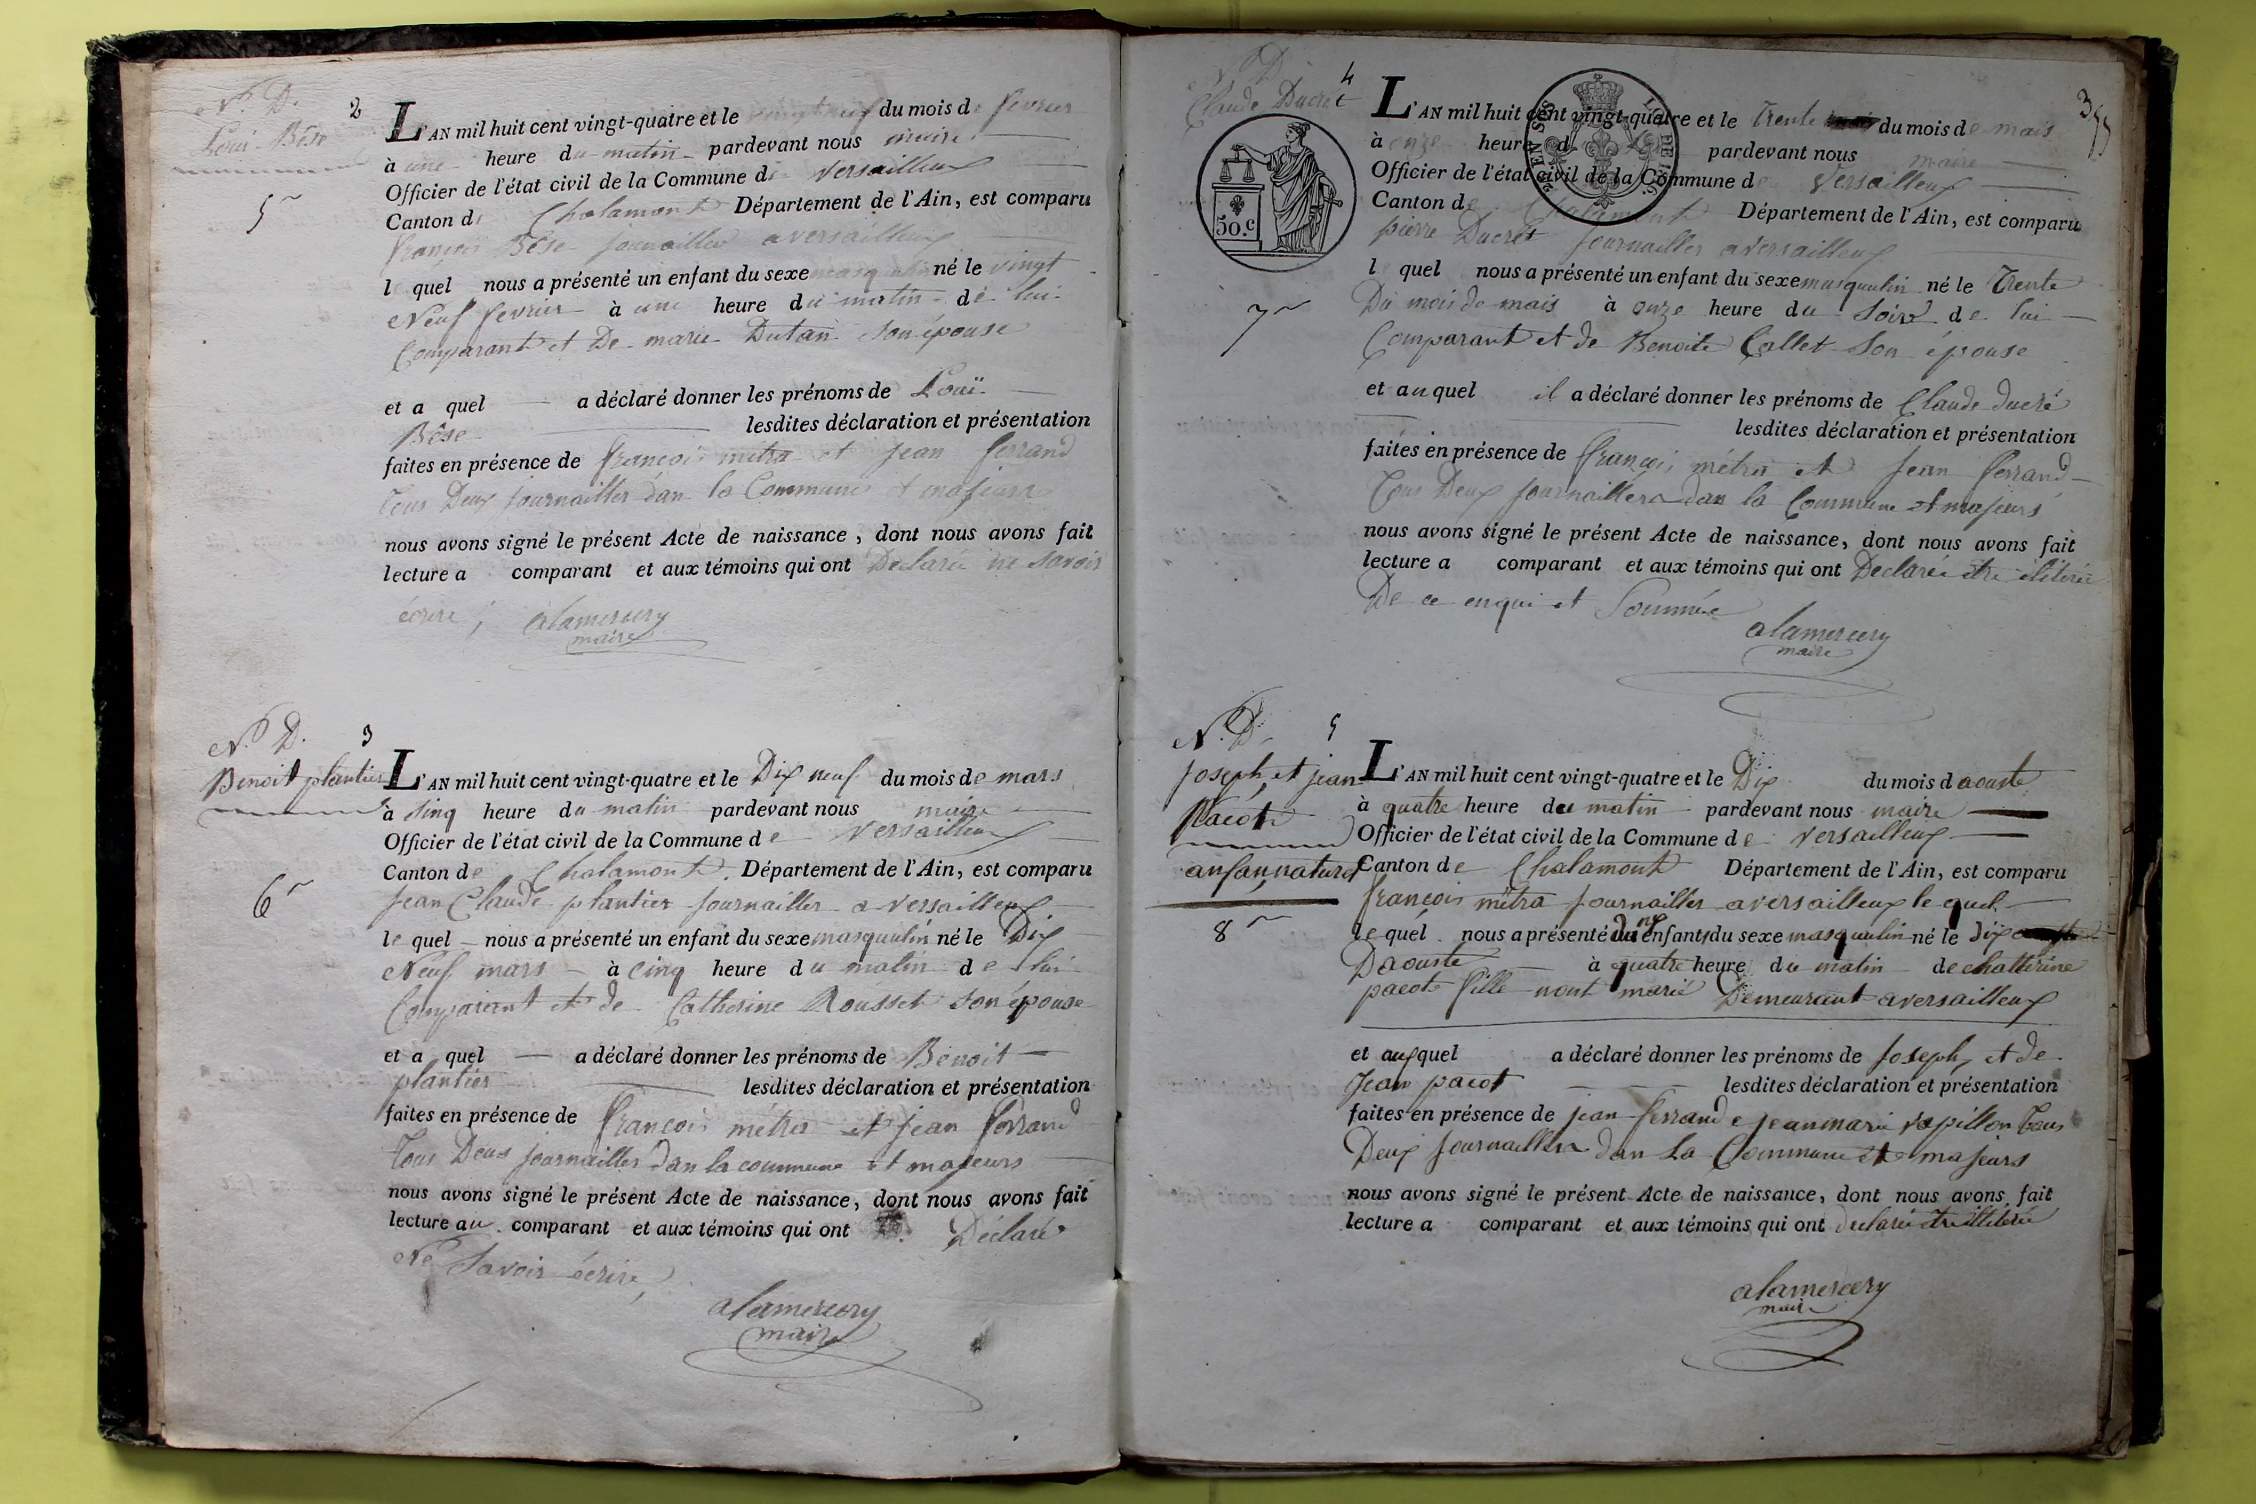 N.º D. 2
Loui Bése
5
L'AN mil huit cent vingt-quatre et le vingt neuf du mois de fevrier
à une heure du matin pardevant nous maire
Officier de l'état civil de la Commune de versailleux
Canton de Chalamont Département de l'Ain, est comparu
françois Bése journailler a versailleux
le quel nous a présenté un enfant du sexe masqulin né le vingt
Neuf fevrier à une heure du matin de lui
Comparant et De marie Dutan son épouse
et a quel a déclaré donner les prénoms de Louï
Bése lesdites déclaration et présentation
faites en présence de françois métra et jean ferrand
tous Deux journailler dan la Commune et majeurs
nous avons signé le présent Acte de naissance, dont nous avons fait
lecture a comparant et aux témoins qui ont Declaré ne savoir
écrire, alamercery
maire
N.º D. 3
Benoit plantier
6
L'AN mil huit cent vingt-quatre et le Dix neuf du mois de mars
à sinq heure du matin pardevant nous maire
Officier de l'état civil de la Commune de versailleux
Canton de Chalamont. Département de l'Ain, est comparu
Jean Claude plantier journailler a versailleux
le quel nous a présenté un enfant du sexe masquulin né le Dix
Neuf mars à cinq heure du matin de lui
Comparant et de Catherine Rousset son épouse
et a quel a déclaré donner les prénoms de Benoit
plantier lesdites déclaration et présentation
faites en présence de françois métra et jean ferrand
tous Deux journailler dan la commune et majeurs
nous avons signé le présent Acte de naissance, dont nous avons fait
lecture au comparant et aux témoins qui ont Déclaré
Ne Savoir écrire,
alamercery
maire
N.º D. 4
Claude Ducret
50.c
7
L'AN mil huit cent vingt-quatre et le Trente du mois de mais
à onze heure du pardevant nous maire
Officier de l'état civil de la Commune de versailleux
Canton de Chalamont Département de l'Ain, est comparu
pierre Ducret journailler a versailleux
le quel nous a présenté un enfant du sexe masquulin né le Trente
Du mois de mais à onze heure du soire de lui
Comparant et de Benoite Collet son épouse
et au quel il a déclaré donner les prénoms de Claude ducré
lesdites déclaration et présentation
faites en présence de françois métra et jean ferrand
Tous Deux journailler dan la Commune et majeurs
nous avons signé le présent Acte de naissance, dont nous avons fait
lecture a comparant et aux témoins qui ont Declaré etre
De ce enqui et Sommée
alamercery
maire
N.º D. 5
joseph et jean
pacot
anfan naturel
8
L'AN mil huit cent vingt-quatre et le Dix du mois d aouste
à quatre heure du matin pardevant nous maire
Officier de l'état civil de la Commune de versailleux
Canton de Chalamont Département de l'Ain, est comparu
françois métra journailler a versailleux le quel
le quel nous a présenté enfants du sexe masquulin né le dix
Daouste à quatre heure du matin de chatterine
pacot fille nont marié Demeurant a versailleux
et auxquel a déclaré donner les prénoms de Joseph et de
Jean pacot lesdites déclaration et présentation
faites en présence de jean ferrand e jean marie papillon tous
Deux journailler dan La Commune et majeurs
nous avons signé le présent Acte de naissance, dont nous avons fait
lecture a comparant et aux témoins qui ont declaré etre illiteré
alamercery
maire